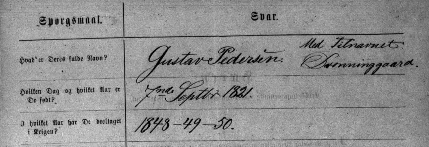 Spørgsmaal. Svar.
Hvad er Deres fulde Navn? Gustav Pedersen. Med Tilnavnet
Dronninggaard.
Hvilken Dag og hvilket Aar er
De født? 7nde Septbr 1821.
I hvilket Aar har De deeltaget
i Krigen? 1848-49-50.